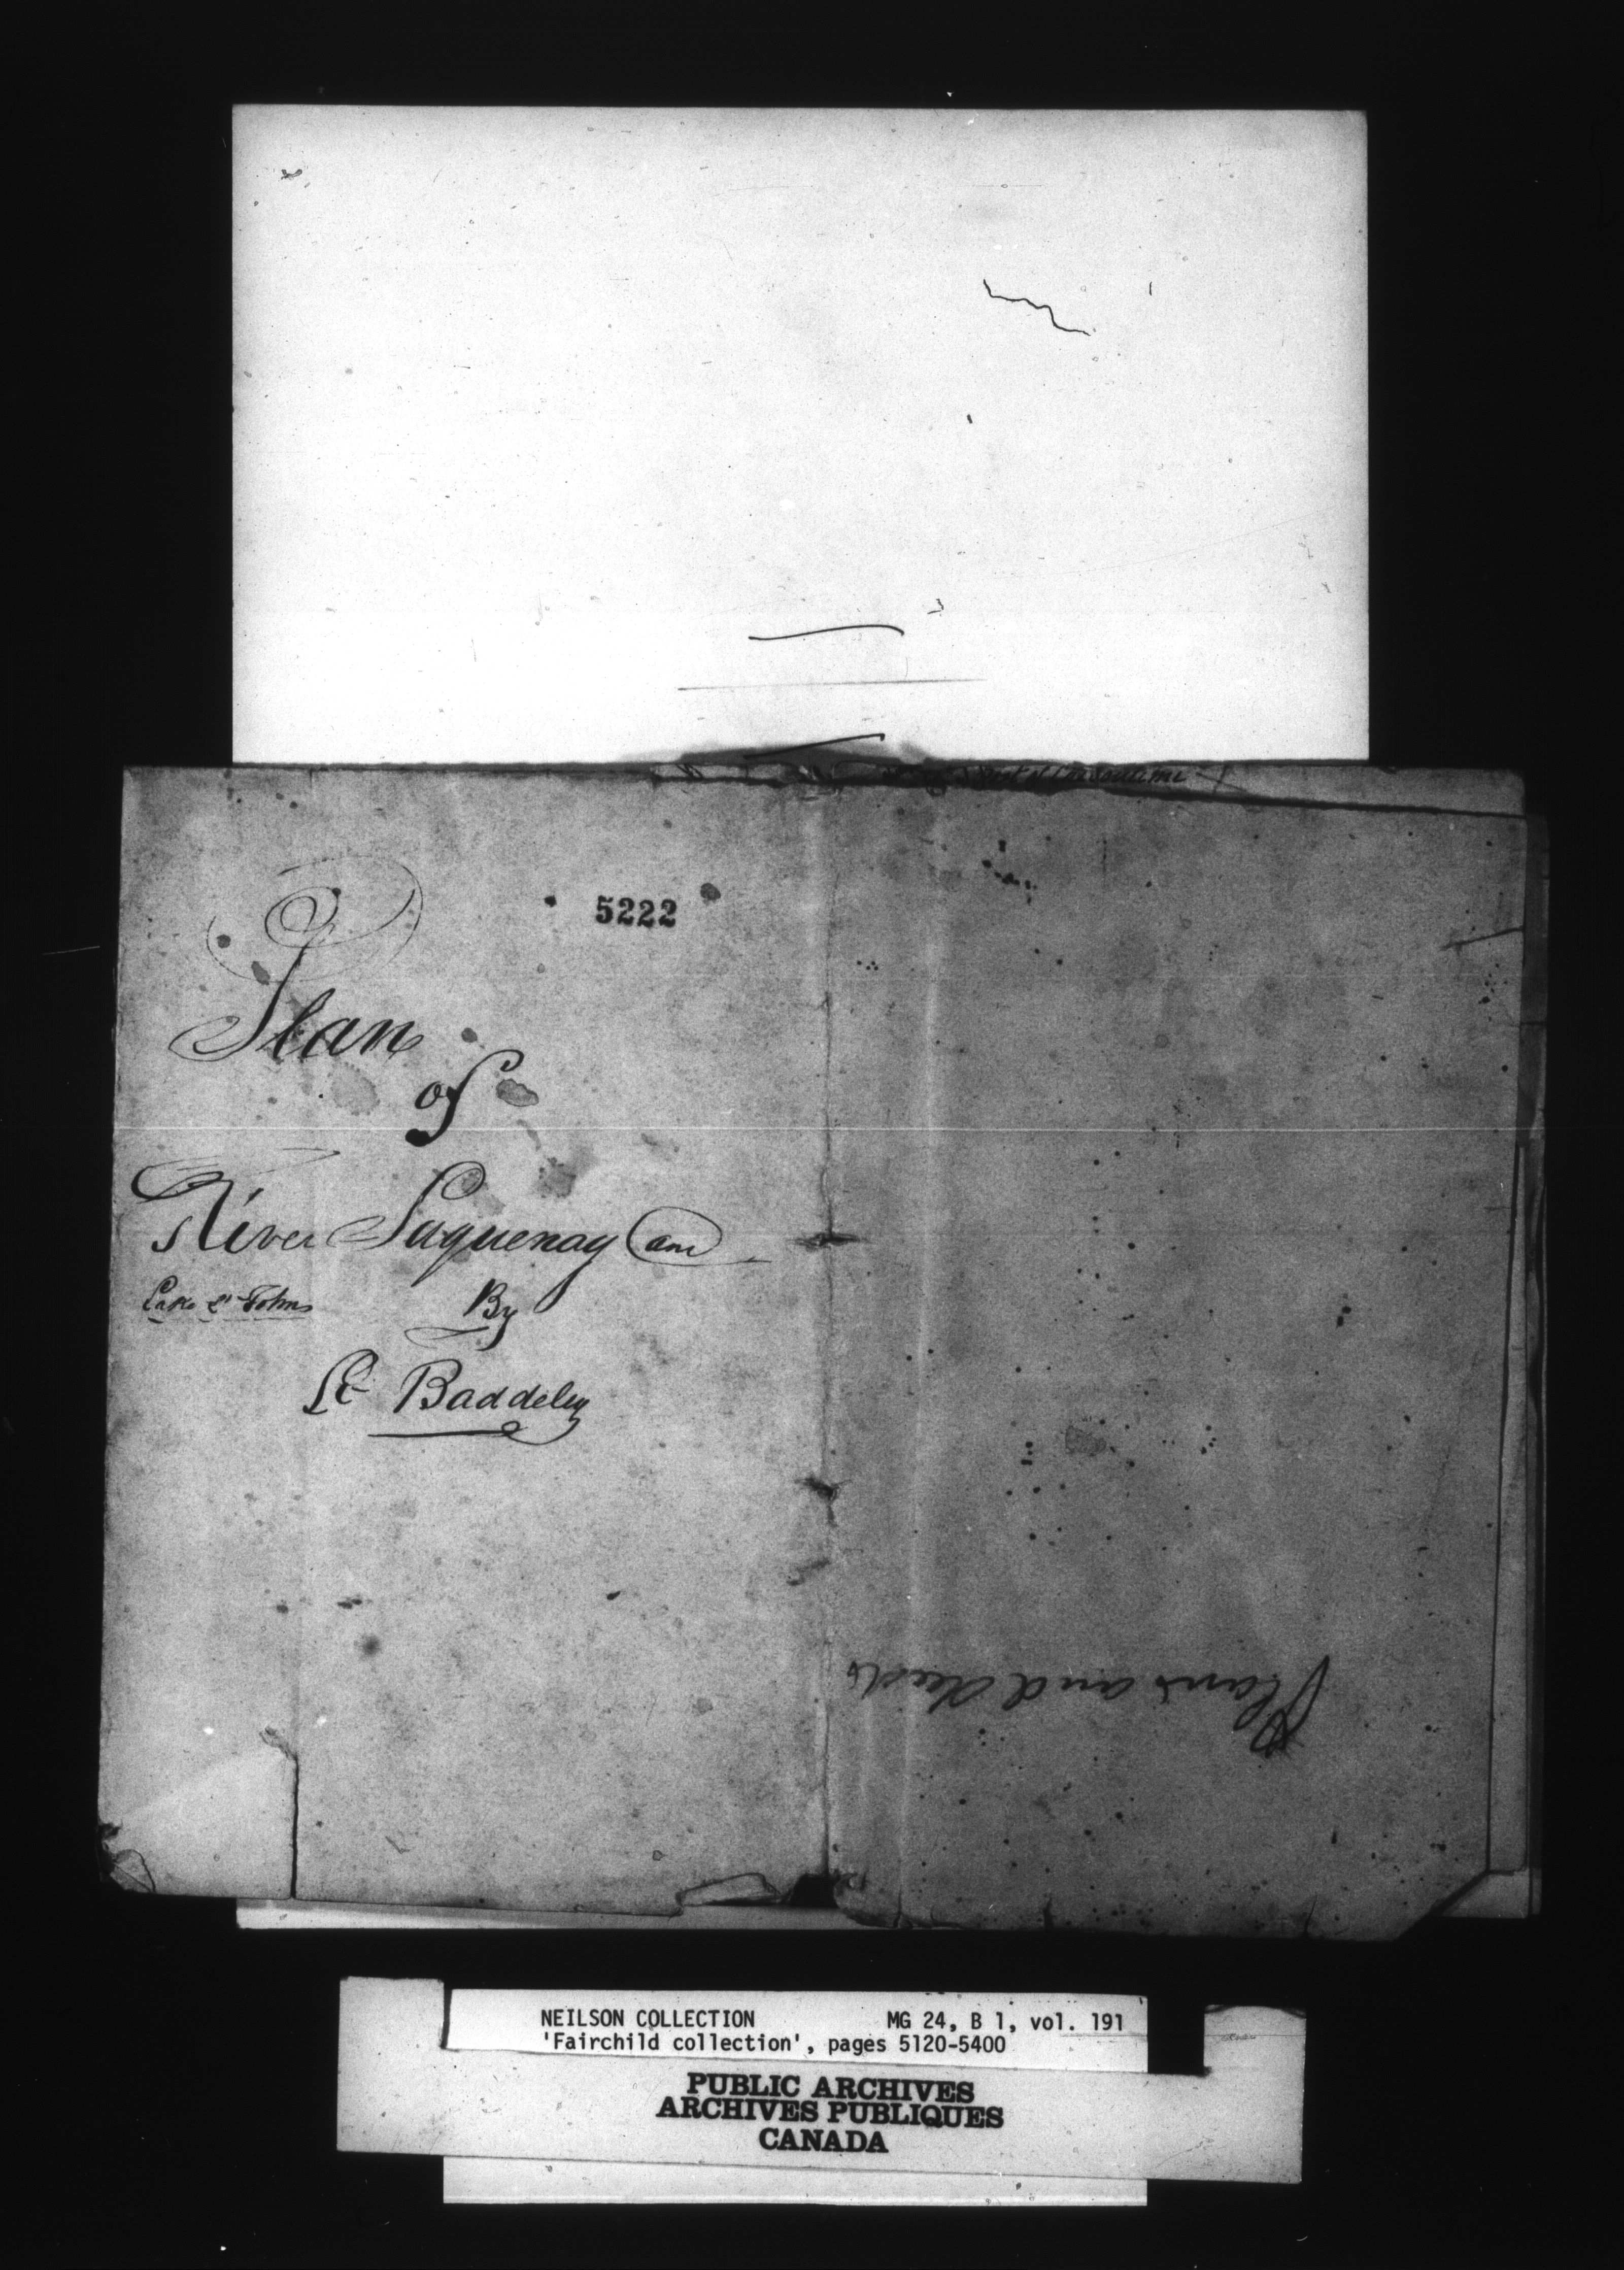 5222
Plan
of
River Saguenay and
Lake St Johns
By
Lt Baddeley
Plans and deeds
NEILSON COLLECTION MG 24, B 1, vol. 191
'Fairchild collection', pages 5120-5400
PUBLIC ARCHIVES
ARCHIVES PUBLIQUES
CANADA